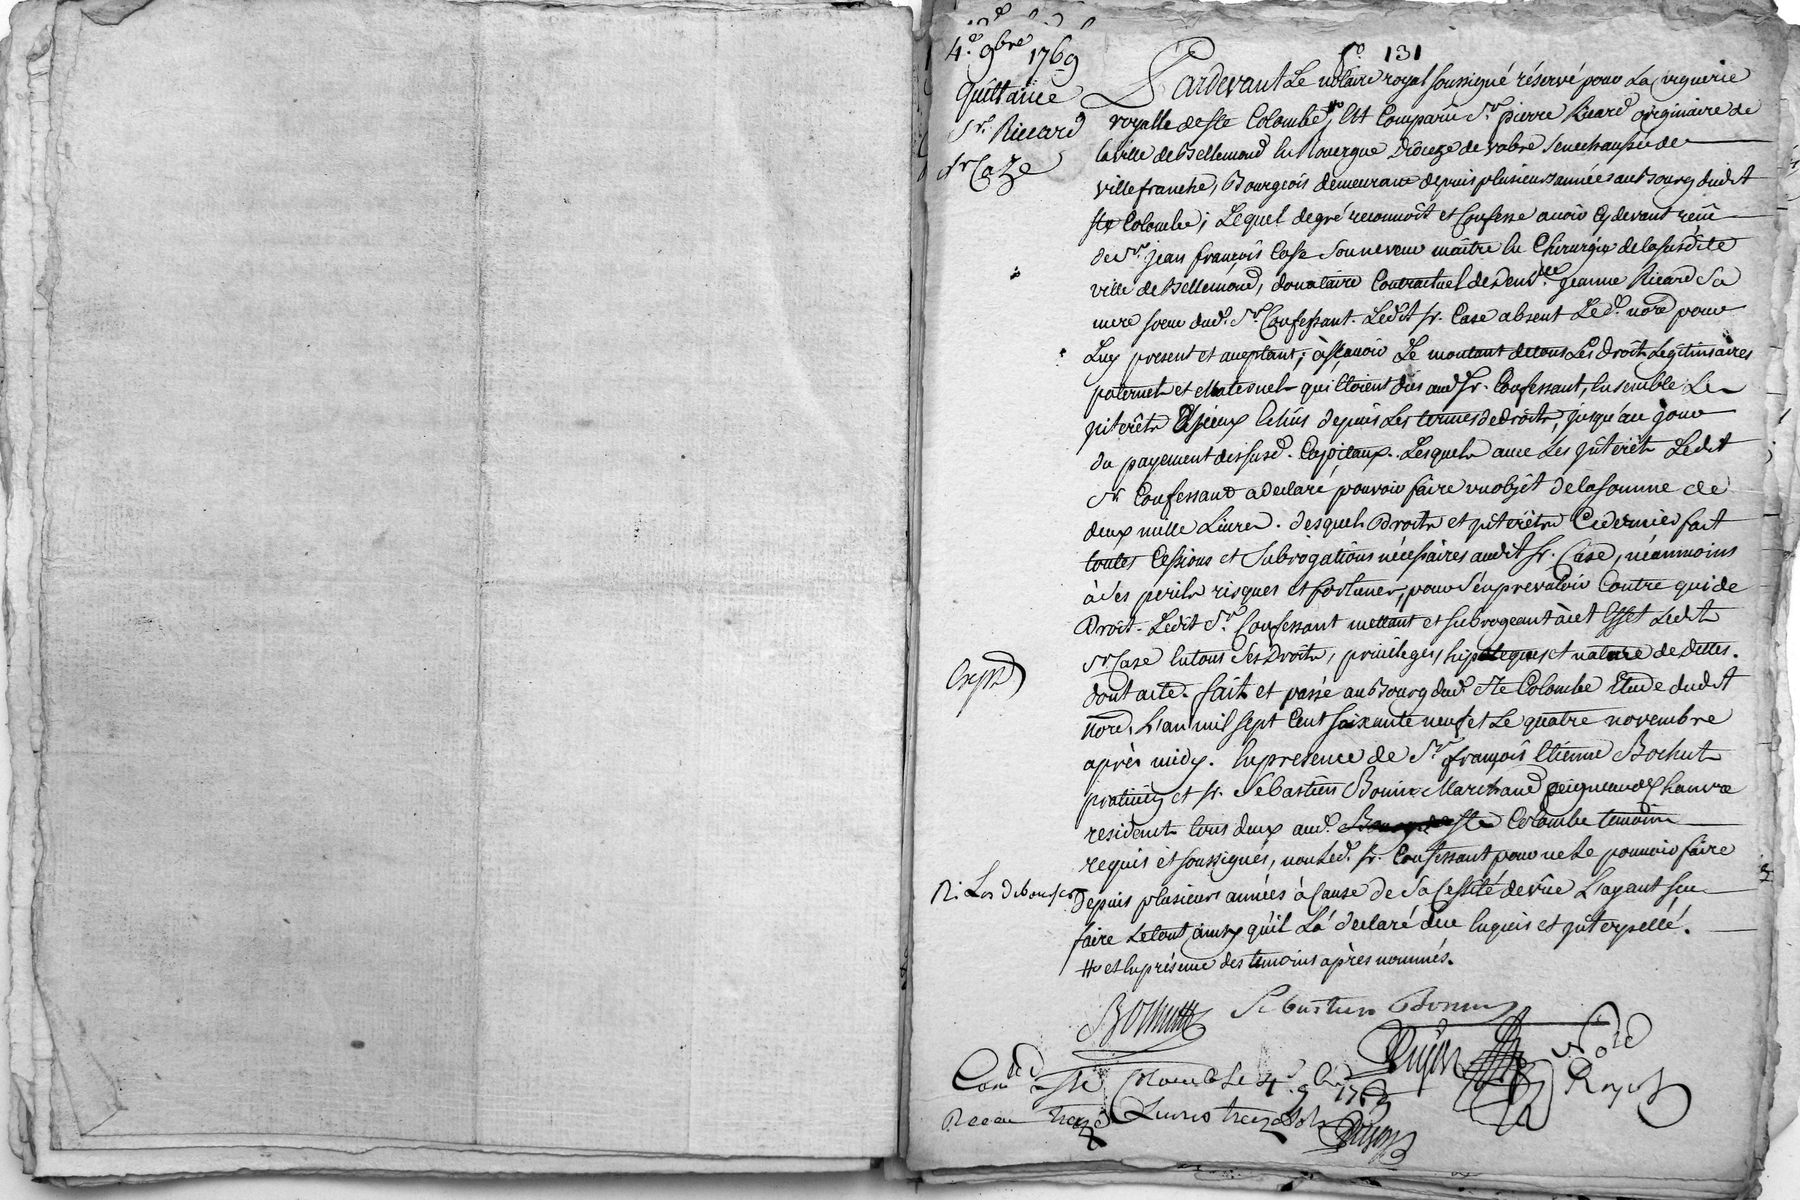 fo 131
4e 9bre 1769
Quittance
Sr. Riccard
Sr Caze
Pardevant Le notaire royal soussigné réservé pour La viguerie
royalle de Ste Colombe, # Est Comparu Sr. pierre Ricard originaire de
la ville de Bellemond En Rouergue Dioceze de vabre Senechaussée de
villefranche, Bourgeois demeurant depuis plusieurs années au Bourg dudit
Ste Colombe; Lequel de gré reconnoît et Confesse avoir Cy devant reçu
de Sr. jean françois Case Son neveu maître En Chirurgie de la susdite
ville de Bellemond, donataire Contractuel de Demlle. Jeanne Ricard Sa
mere soeur dud. Sr. Confessant. Ledit Sr. Case absent Led. nore pour
Luy present et acceptant; à sçavoir Le montant de tous Les droits Legitimaires
paternels et Maternels qui Etoient dus aud Sr. Confessant, Ensemble Les
interêts D'iceux Echus depuis Les termes de droits, jusqu'au jour
du payement des susd. Capitaux. Lesquels avec Les interêts Ledit
Sr. Confessant a declaré pouvoir faire un objet de la somme de
deux mille Livres. desquels Droits et interêts Ce dernier fait
toutes Cessions et Subrogations nécessaires audit Sr. Case, néanmoins
à Ses perils risques et fortunes, pour s'en prevaloir Contre qui de
Droit. Ledit Sr. Confessant mettant et subrogeant à cet Effet Ledit
Sr. Case En tous Ses Droits, privileges, hipoteques et nature de dettes.
dont acte. fait et passé au Bourg dud. Ste Colombe Etude dudit
nore, L'an mil sept Cent soixante neuf et Le quatre novembre
après midy. En presence de Sr. françois Etienne Bochut
praticien et Sr. Sebastien Bonin Marchand peigneur de Chanvre
residents tous deux aud. Ste Colombe temoins
requis et soussignés, non Led. Sr. Confessant pour ne Le pouvoir faire
Depuis plusieurs années à Cause de Sa Cessité de vûe L'ayant sçu
faire Le tout ainsy qu'il L'a declaré due enquis et interpellé.
# et En présence des temoins après nommés.
Bochutt Sebastien Bonin
Dujon Nore Royal
Comlé à Ste Colombe Le 4e 9bre 1769
Receu treize Livres treize Sols Dujon